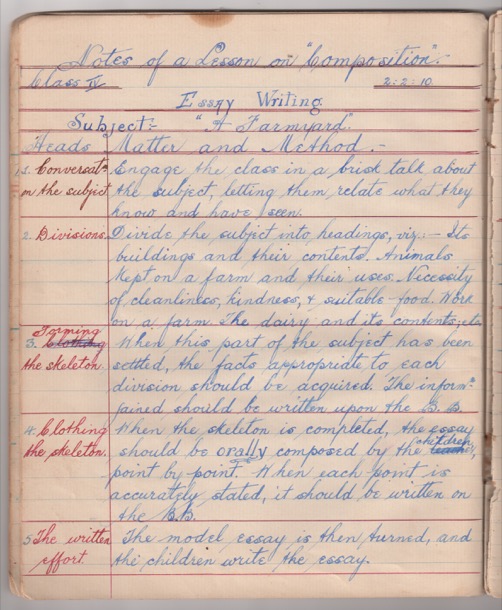 Notes of a Lesson on "Composition".
Class IV 2-2-10
Essay Writing
Subject:- "A Farmyard".
Heads Matter and Method.-
1. Conversatn Engage the class in a brisk talk about
on the subject the subject, letting them relate what they
know and have seen.
2. Divisions. Divide the subject into headings, viz:- Its
buildings and their contents. Animals
kept on a farm and their uses. Necessity
of cleanliness, kindness, & suitable food. Work
on a farm. The dairy and its contents, etc.
Forming
3. Clothing When this part of the subject has been
the skeleton. settled, the facts appropriate to each
division should be acquired. The informn
gained should be written upon the B.B.
4. Clothing When the skeleton is completed, the essay
the skeleton. should be orally composed by the children,
point by point. When each point is
accurately stated, it should be written on
the B.B.
5. The written The model essay is then turned, and
effort. the children write the essay.